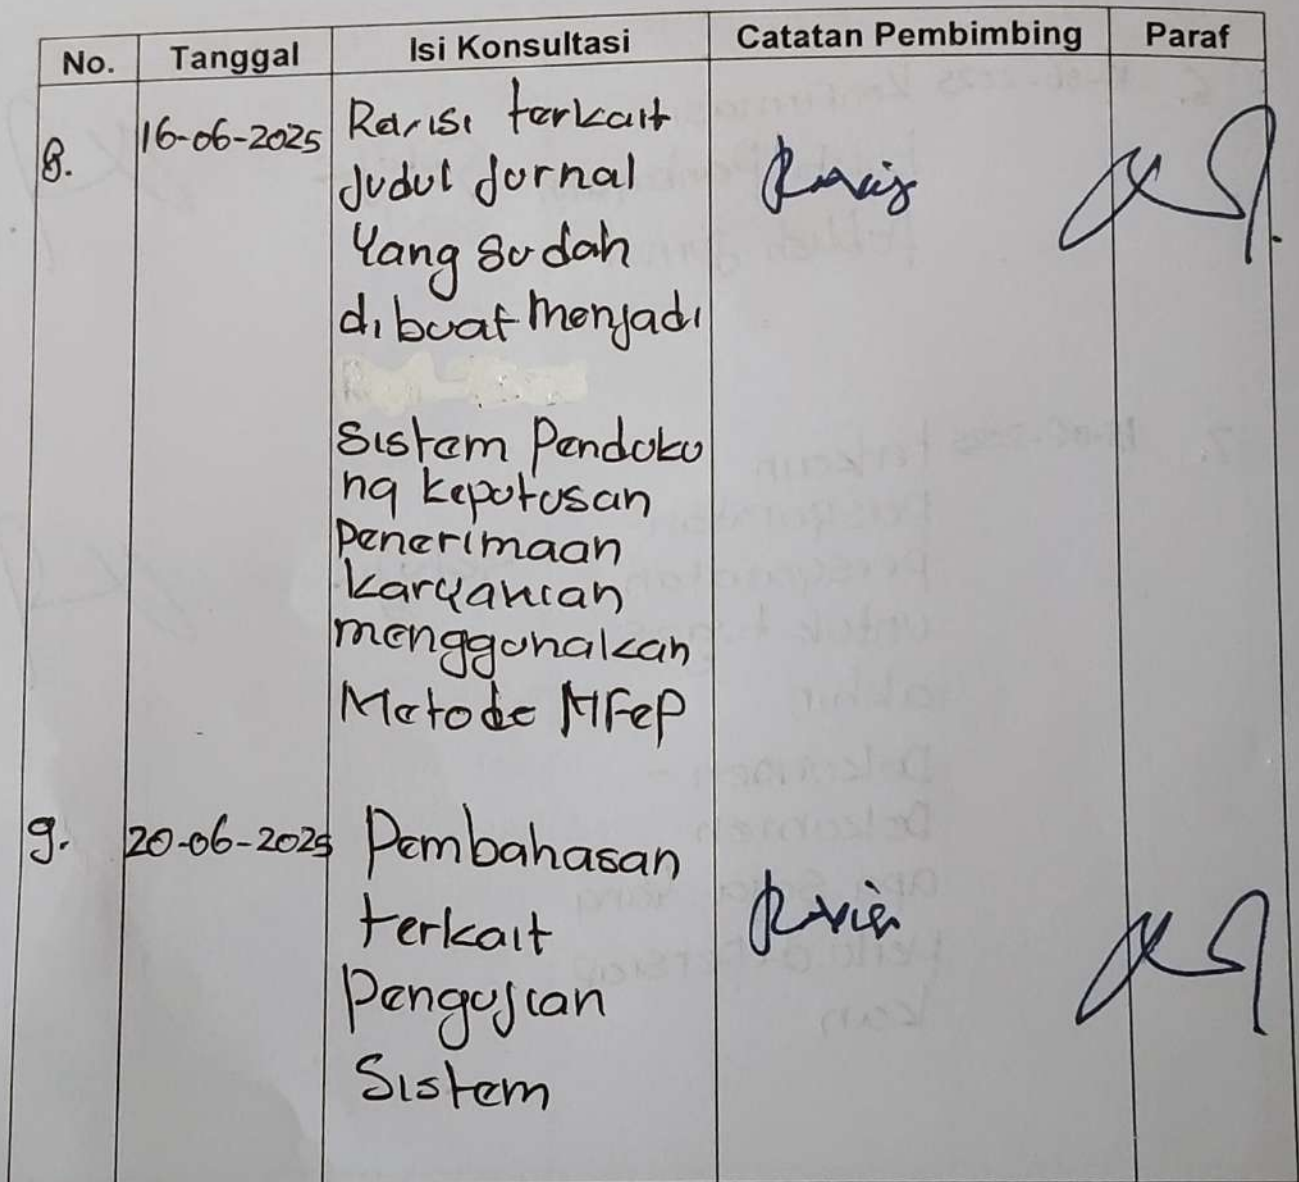 No. Tanggal Isi Konsultasi Catatan Pembimbing Paraf
8. 16-06-2025 Revisi terkait
Judul Jurnal
Yang sudah
dibuat menjadi
Sistem Penduku
ng keputusan
Penerimaan
karyawan
menggunakan
Metode MFeP
9. 20-06-2025 Pembahasan
terkait Revisi
Pengujian
Sistem